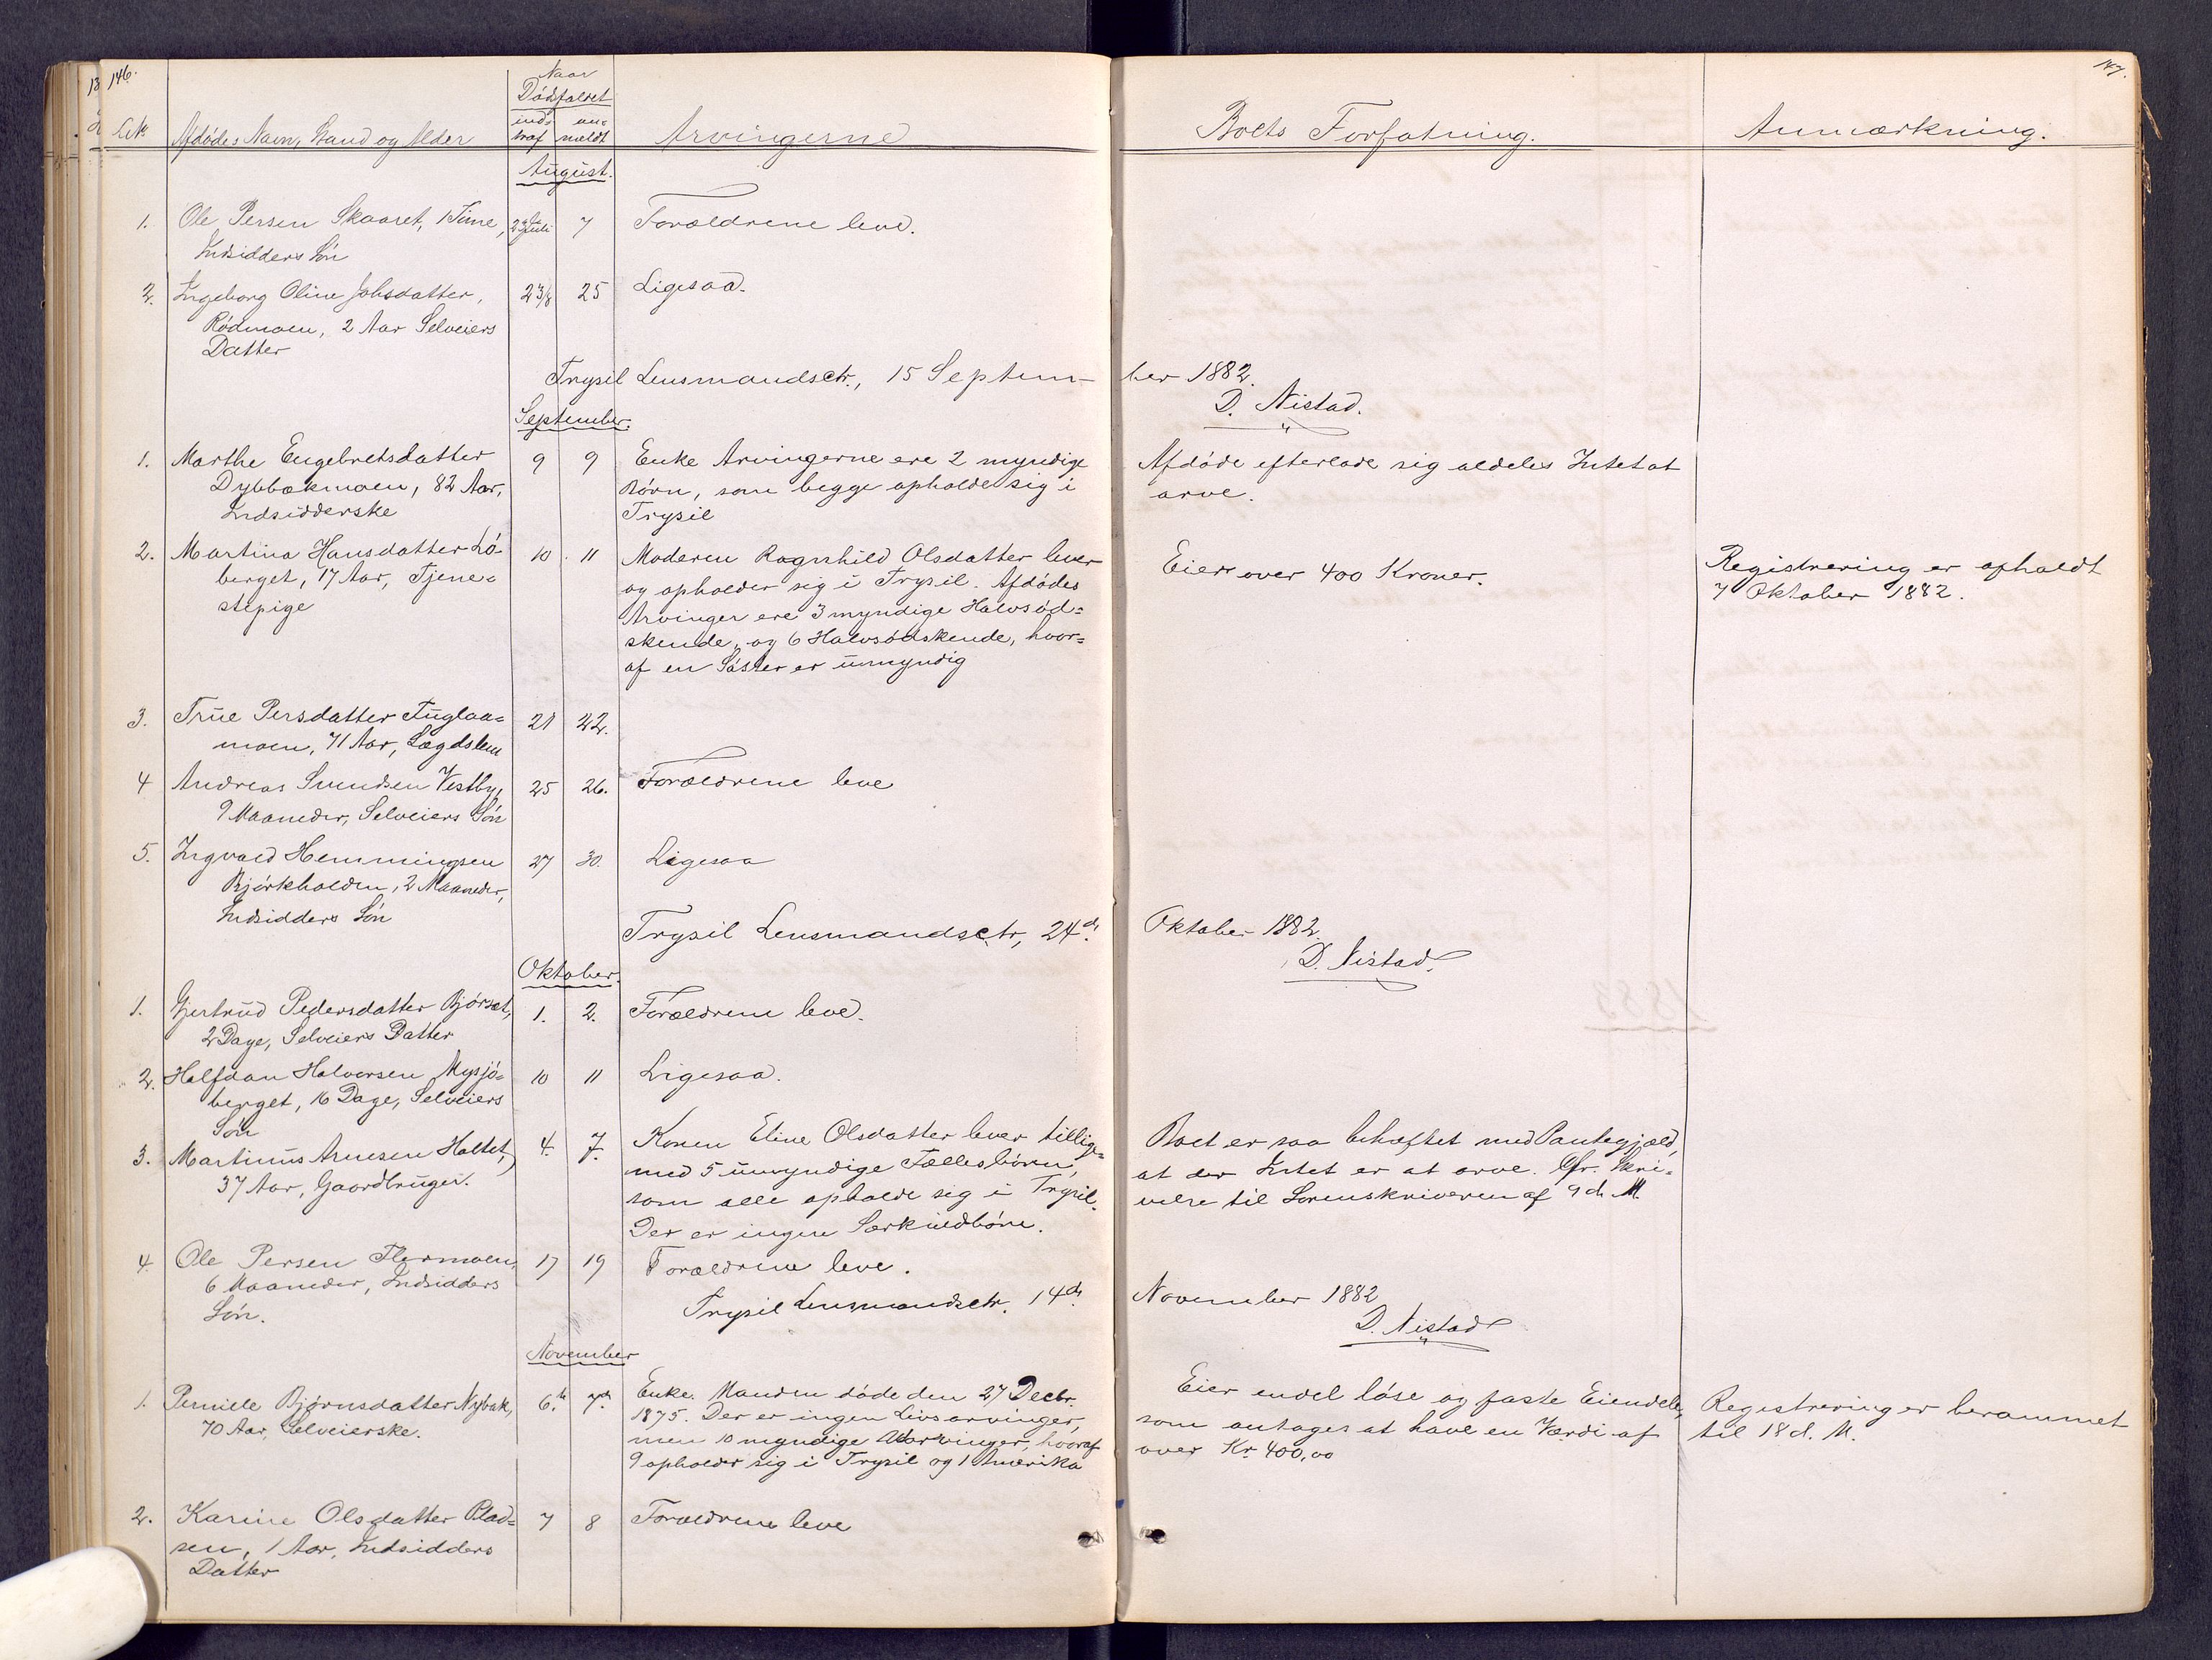 146.
147.
Naar
Dødsfaldet
No. Afdødes Navn, Stand og Alder
ind- an-
traf meldt
Arvingerne
Boets Forfatning.
Anmærkning.
August.
1. Ole Persen Skaaret, 1 Time, 23 Juli 7 Forældrene leve.
Indsidders Søn
2. Ingeborg Oline Johsdatter, 23/8 25 Ligesaa.
Rødmoen, 2 Aar Selveiers
Datter
Trysil Lensmandsctr., 15 Septem-
ber 1882.
D. Nistad.
September.
1. Marthe Engebretsdatter 9 9 Enke Arvingerne ere 2 myndige Afdøde efterlade sig aldeles Intet at
Dybbækmoen, 82 Aar, Børn, som begge opholde sig i arve.
Indsidderske Trysil
2. Martina Hansdatter Lø- 10 11 Moderen Ragnhild Olsdatter lever Eier over 400 Kroner. Registrering er afholdt
berget, 17 Aar, Tjene- og opholder sig i Trysil. Afdødes 7 Oktober 1882.
stepige Arvinger ere 3 myndige Halvsød-
skende, og 6 Halvsødskende, hvor-
af en Søster er umyndig
3. True Persdatter Fuglaa- 21 22.
moen, 71 Aar, Lægdslem
4 Andreas Svendsen Vestby, 25 26. Forældrene leve
9 Maaneder, Selveiers Søn
5. Ingvald Hemmingsen 27 30. Ligesaa
Bjørkholden, 2 Maaneder,
Indsidders Søn
Trysil Lensmandsctr, 24d.
Oktober 1882.
D. Nistad.
Oktober.
1. Gjertrud Pedersdatter Bjørset, 1. 2. Forældrene leve.
2 Dage, Selveiers Datter
2. Halfdan Halvorsen Mysjø- 10 11 Ligesaa.
berget, 16 Dage, Selveiers
Søn
3. Martinus Arnesen Holtet, 4. 7. Konen Eline Olsdatter lever tillige- Boet er saa behæftet med Pantegjæld,
37 Aar, Gaardbruger. med 5 umyndige Fællesbørn, at der Intet er at arve. Cfr. Skri-
som alle opholde sig i Trysil. velse til Sorenskriveren af 9 d. M.
Der er ingen Særkuldbørn.
4. Ole Persen Flermoen, 17 19 Forældrene leve.
6 Maaneder, Indsidders
Søn.
Trysil Lensmandsctr. 14d.
November 1882
D. Nistad
November
1. Pernille Bjørnsdatter Nybak, 6te 7de Enke. Manden døde den 27 Decbr. Eier endel løse og faste Eiendele, Registrering er berammet
70 Aar, Selveierske. 1875. Der er ingen Livsarvinger, som antages at have en Værdi af til 18 d. M.
men 10 myndige Arvinger, hvoraf over Kr. 400,00
9 opholder sig i Trysil og 1 Amerika
2. Karine Olsdatter Plad- 7 8 Forældrene leve
sen, 1 Aar, Indsidders
Datter